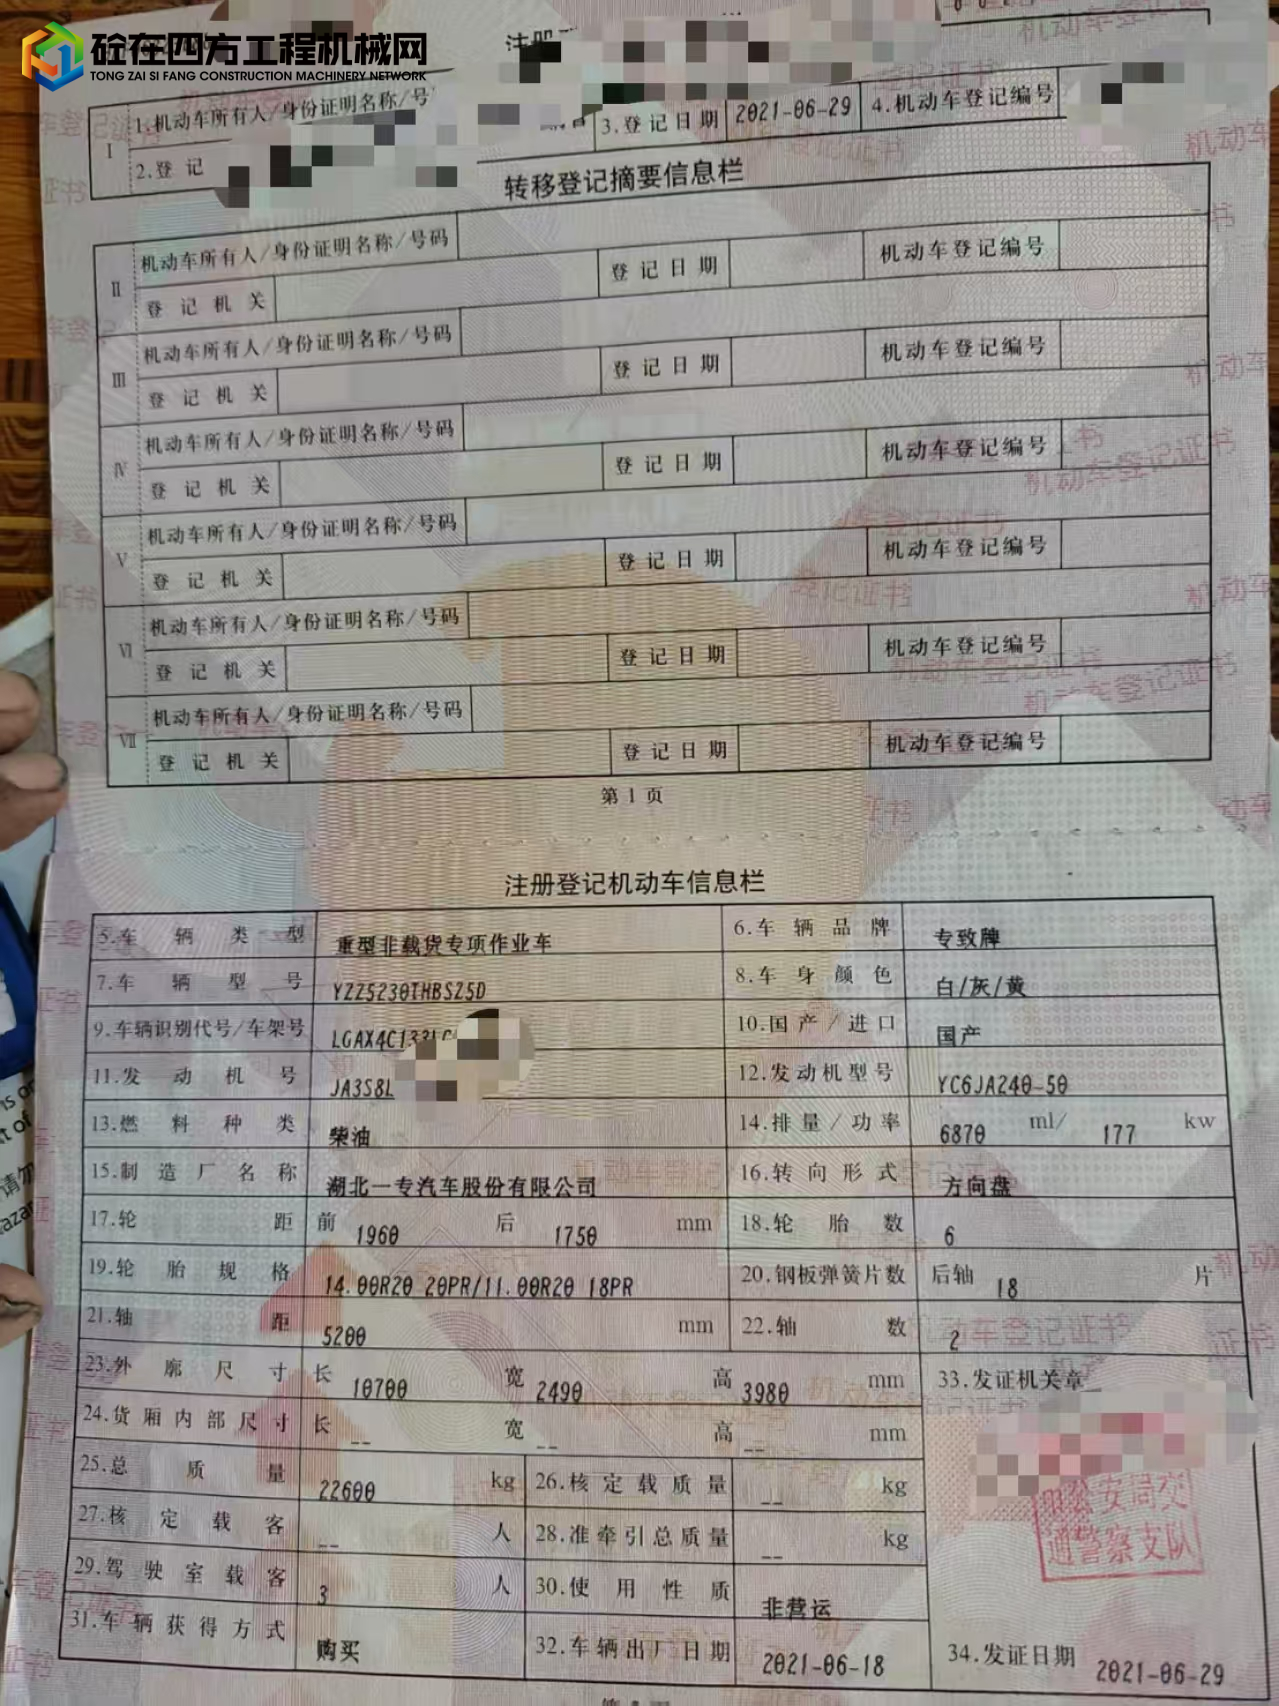 砼在四方工程机械网
TONG ZAI SI FANG CONSTRUCTION MACHINERY NETWORK
注册
I 1.机动车所有人/身份证明名称/号
2.登记 3.登记日期 2021-06-29 4.机动车登记编号
转移登记摘要信息栏
II 机动车所有人/身份证明名称/号码
登记机关 登记日期 机动车登记编号
III 机动车所有人/身份证明名称/号码
登记机关 登记日期 机动车登记编号
IV 机动车所有人/身份证明名称/号码
登记机关 登记日期 机动车登记编号
V 机动车所有人/身份证明名称/号码
登记机关 登记日期 机动车登记编号
VI 机动车所有人/身份证明名称/号码
登记机关 登记日期 机动车登记编号
VII 机动车所有人/身份证明名称/号码
登记机关 登记日期 机动车登记编号
第 1 页
注册登记机动车信息栏
5.车辆类型 重型非载货专项作业车 6.车辆品牌 专致牌
7.车辆型号 YZZ5230THBS25D 8.车身颜色 白/灰/黄
9.车辆识别代号/车架号 LGAX4C133LC 10.国产/进口 国产
11.发动机号 JA3S8L 12.发动机型号 YC6JA240-50
13.燃料种类 柴油 14.排量/功率 6870 ml/ 177 kw
15.制造厂名称 湖北一专汽车股份有限公司 16.转向形式 方向盘
17.轮距 前 1960 后 1750 mm 18.轮胎数 6
19.轮胎规格 14.00R20 20PR/11.00R20 18PR 20.钢板弹簧片数 后轴 18 片
21.轴距 5200 mm 22.轴数 2
23.外廓尺寸 长 10700 宽 2490 高 3980 mm 33.发证机关章
24.货厢内部尺寸 长 -- 宽 -- 高 -- mm
25.总质量 22600 kg 26.核定载质量 -- kg
公安局交
27.核定载客 -- 人 28.准牵引总质量 -- kg
通警察支队
29.驾驶室载客 3 人 30.使用性质 非营运
31.车辆获得方式 购买 32.车辆出厂日期 2021-06-18 34.发证日期 2021-06-29